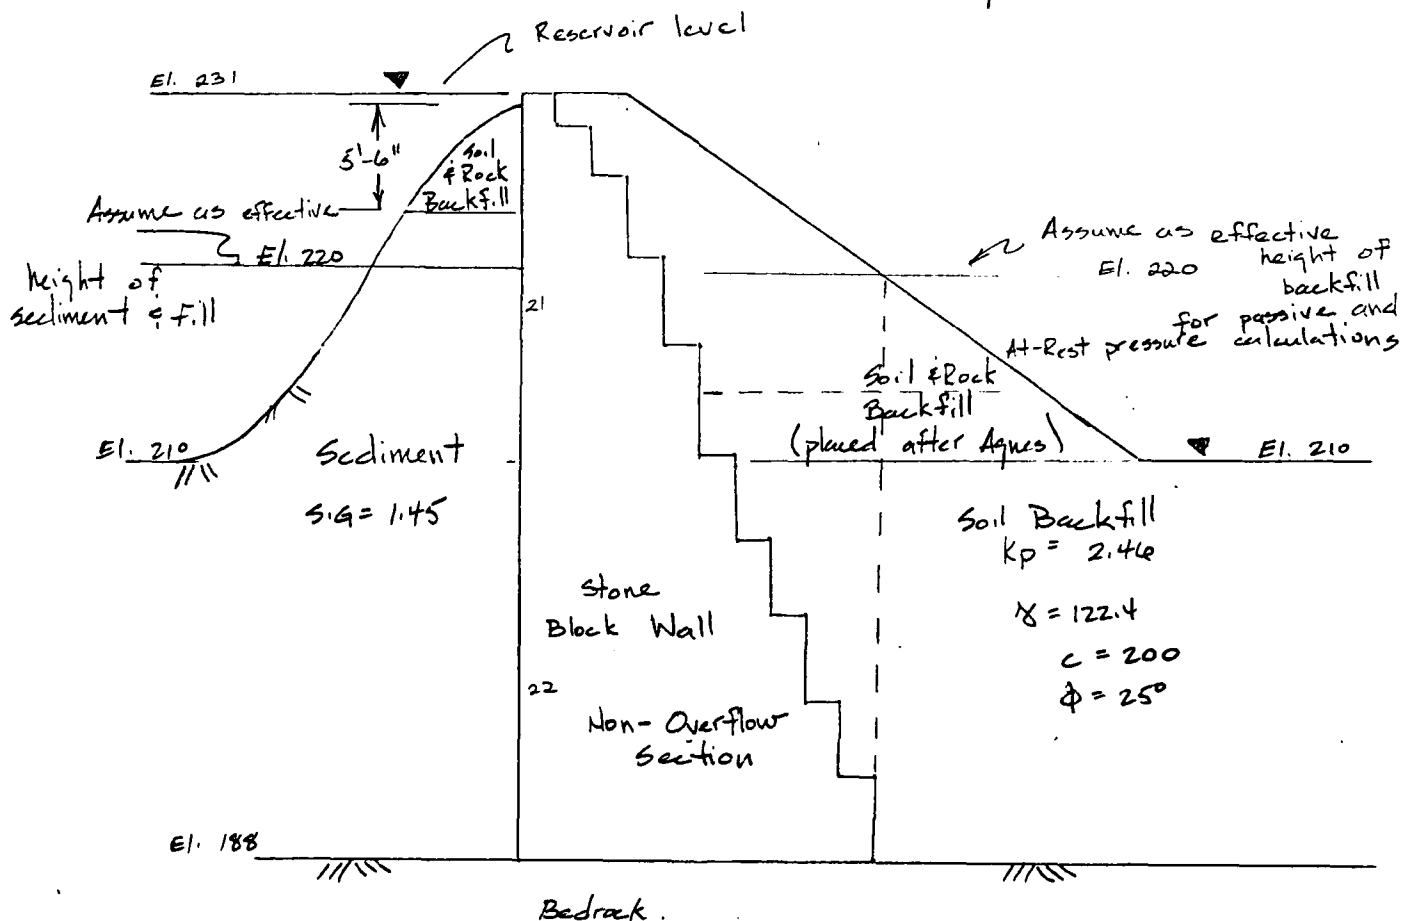 Reservoir level
El. 231
5'-6"
Soil
& Rock
Backfill
Assume as effective
El. 220
height of
sediment & fill
Assume as effective
El. 220 height of
backfill
for passive and
At-Rest pressure calculations
21
Soil & Rock
Backfill
(placed after Agnes)
El. 210
Sediment
S.G = 1.45
El. 210
Soil Backfill
Kp = 2.46
γ = 122.4
c = 200
ϕ = 25°
Stone
Block Wall
22
Non-Overflow
Section
El. 188
Bedrock.